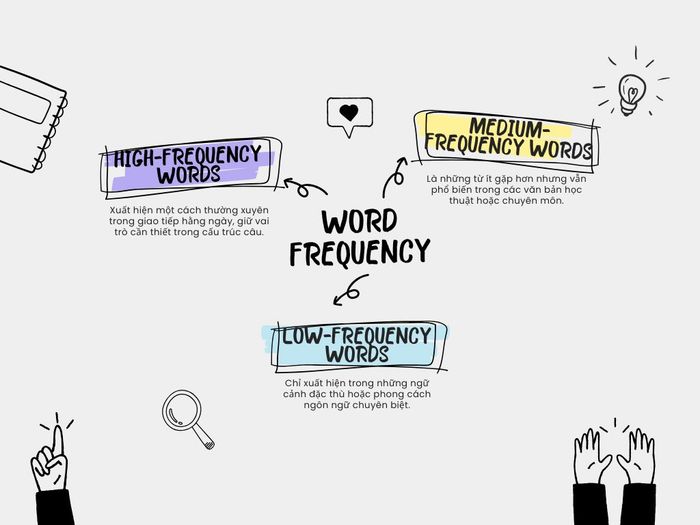 HIGH-FREQUENCY
WORDS
Xuất hiện một cách thường xuyên
trong giao tiếp hằng ngày, giữ vai
trò cần thiết trong cấu trúc câu.
MEDIUM-
FREQUENCY WORDS
Là những từ ít gặp hơn nhưng vẫn
phổ biến trong các văn bản học
thuật hoặc chuyên môn.
WORD
FREQUENCY
LOW-FREQUENCY
WORDS
Chỉ xuất hiện trong những ngữ
cảnh đặc thù hoặc phong cách
ngôn ngữ chuyên biệt.